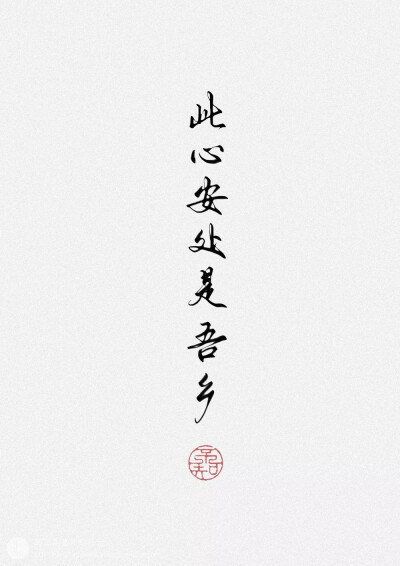 此心安处是吾乡